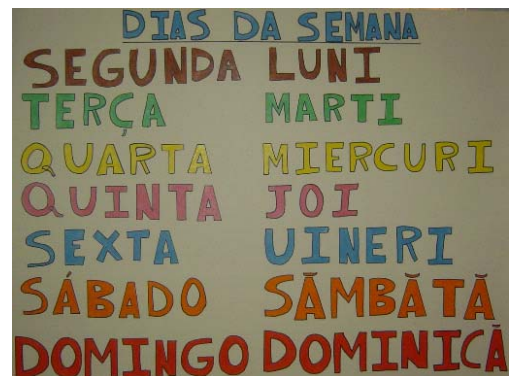 DIAS DA SEMANA
SEGUNDA LUNI
TERÇA MARTI
QUARTA MIERCURI
QUINTA JOI
SEXTA UINERI
SÁBADO SĂMBĂTĂ
DOMINGO DOMINICĂ